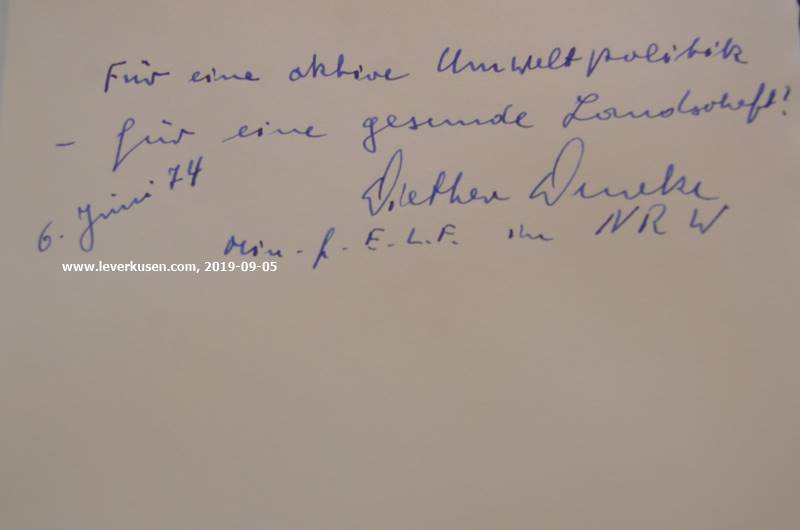 Für eine aktive Umweltpolitik
- für eine gesunde Landschaft!
6. Juni 74
Diether Deneke
Min. f. E.L.F. im NRW
www.leverkusen.com, 2019-09-05